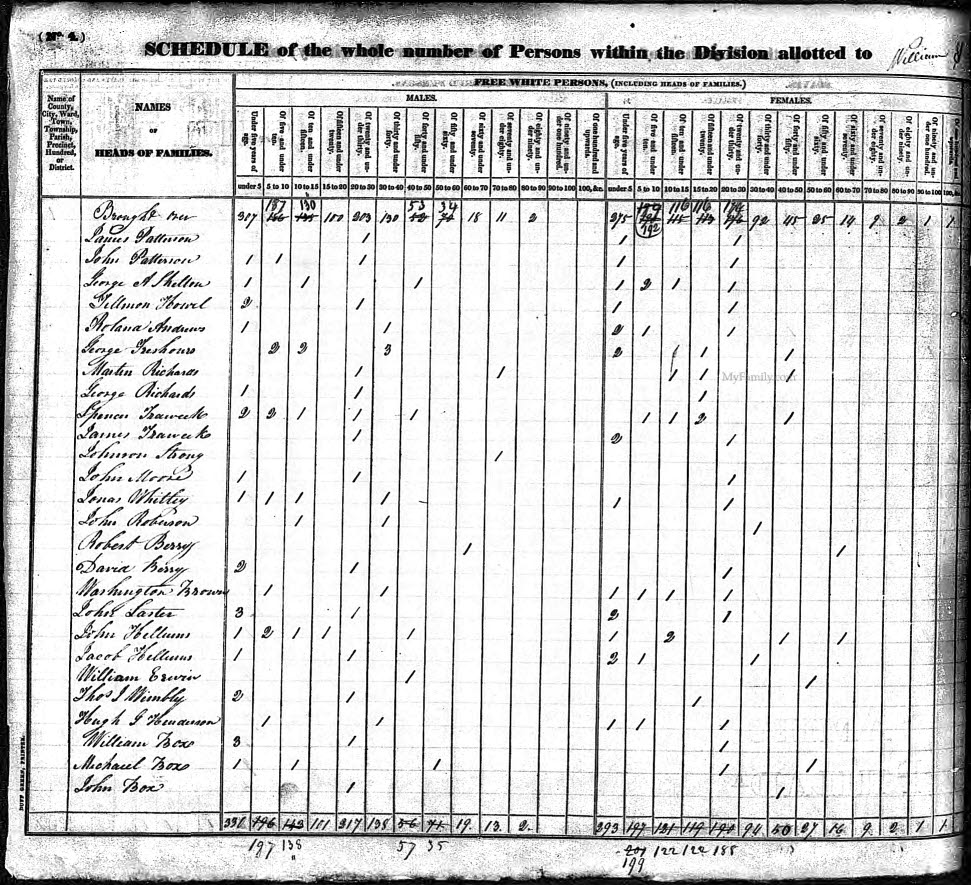 (No. 4.)
SCHEDULE of the whole number of Persons within the Division allotted to William
FREE WHITE PERSONS, (INCLUDING HEADS OF FAMILIES.)
MALES. FEMALES.
Name of County, City, Ward, Town, Township, Parish, Precinct, Hundred, or District.
NAMES OF HEADS OF FAMILIES.
Under five years of age. Of five and under ten. Of ten and under fifteen. Of fifteen and under twenty. Of twenty and under thirty. Of thirty and under forty. Of forty and under fifty. Of fifty and under sixty. Of sixty and under seventy. Of seventy and under eighty. Of eighty and under ninety. Of ninety and under one hundred. Of one hundred and upwards. Under five years of age. Of five and under ten. Of ten and under fifteen. Of fifteen and under twenty. Of twenty and under thirty. Of thirty and under forty. Of forty and under fifty. Of fifty and under sixty. Of sixty and under seventy. Of seventy and under eighty. Of eighty and under ninety. Of ninety and under one hundred.
under 5 5 to 10 10 to 15 15 to 20 20 to 30 30 to 40 40 to 50 50 to 60 60 to 70 70 to 80 80 to 90 90 to 100 100, &c. under 5 5 to 10 10 to 15 15 to 20 20 to 30 30 to 40 40 to 50 50 to 60 60 to 70 70 to 80 80 to 90 90 to 100 100, &c.
187 130 53 34 116 116
Brought over 307 100 203 130 18 11 2 275 92 45 25 14 9 2 1 1
192
James Patterson 1 1 1
John Patterson 1 1 1 1 1
George A Shelton 1 1 1 1 2 1 1
Tillmon Howel 2 1 1 1
Roland Andrews 1 1 2 1 1
George Freshours 2 2 3 2 1 1 1
Martin Richards 1 1 1 1 1
MyFamily.com
George Richards 1 1 1
Spencer Traweek 2 2 1 1 1 1 1 2 1
James Traweek 1 2 1
Johnson Strong 1
John Moore 1 1 1
Jonas Whitley 1 1 1 1 1 1
John Roberson 1 1 1
Robert Berry 1 1
David Berry 2 1 1
Washington Brown 1 1 1 1 1 1
John Laster 3 1 2 1
John Hellums 1 2 1 1 1 1 2 1 1
Jacob Hellums 1 1 2 1 1
William Erwin 1 1
Thos J Wimbly 2 1 1
Hugh G Henderson 1 1 1 1 1
William Box 3 1 1
Michael Box 1 1 1 1 1
John Box 1 1
331 196 143 101 217 138 56 71 19 13 2 293 197 121 119 190 94 50 27 16 9 2 1 1
197 138 57 35 201 122 122 188
199
DUFF GREEN, PRINTER.